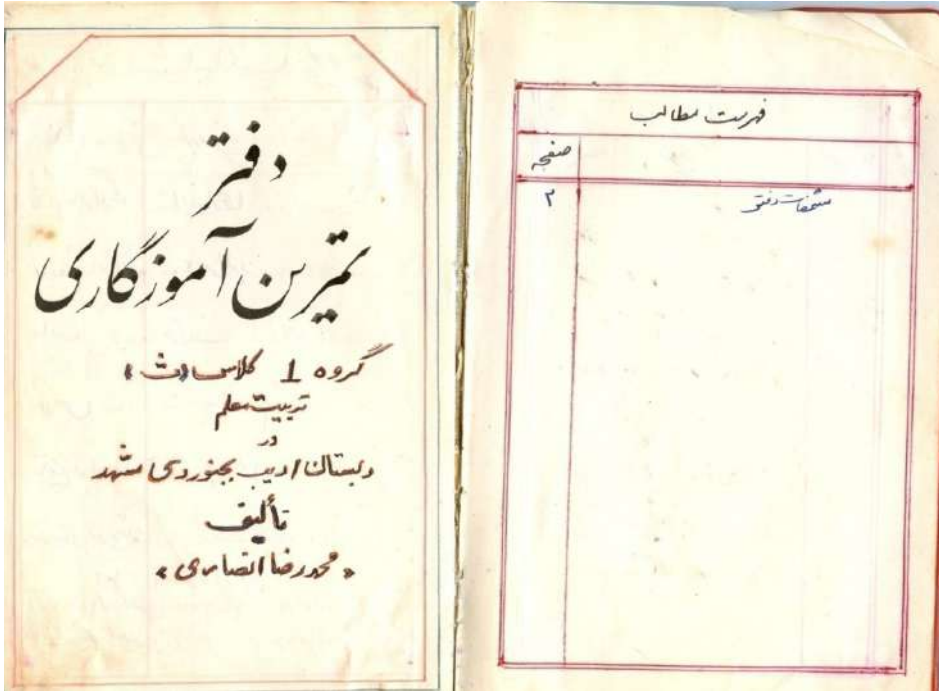 دفتر
تمرین آموزگاری
گروه 1 کلاس «ث»
تربیت معلم
در
دبستان ادیب بجنوردی مشهد
تألیف
«محمدرضا انصاری»
فهرست مطالب
صفحه
مشخصات دفتر ۲